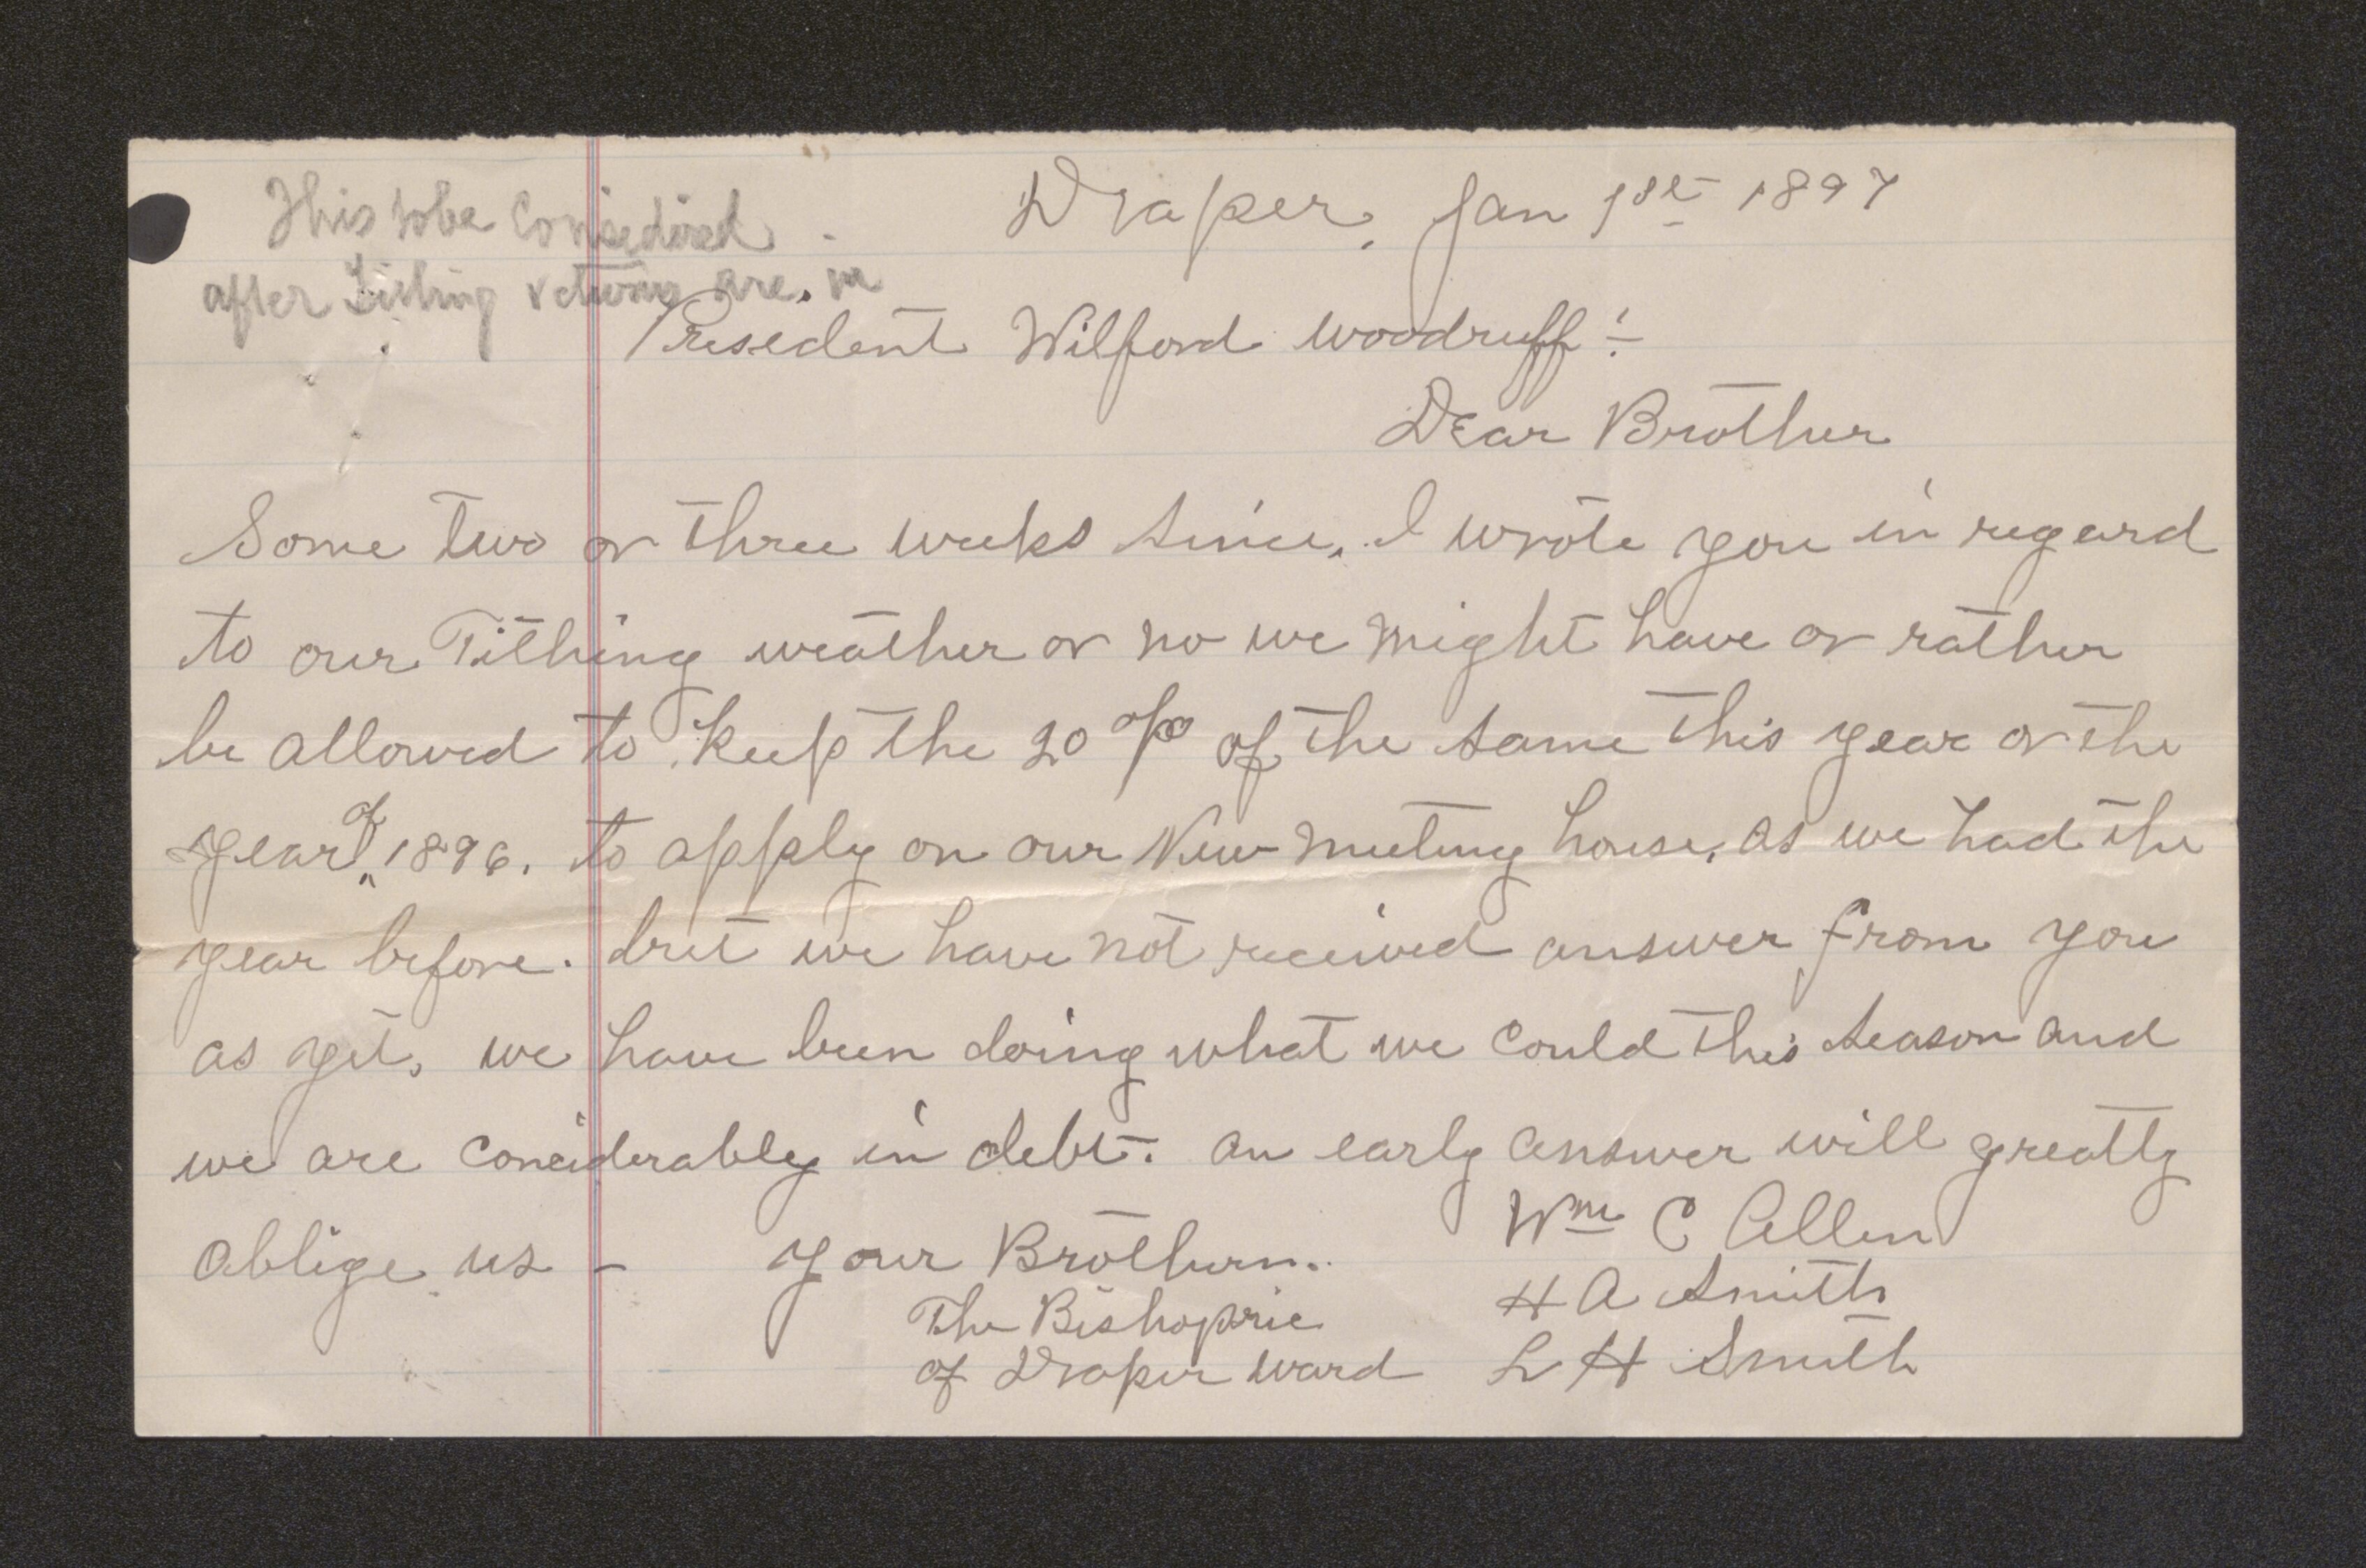 This to be Considered
after Tithing returns are in
Draper, Jan 1st 1897
President Wilford Woodruff:
Dear Brother
Some two or three weeks since, I wrote you in regard
to our Tithing weather or no we might have or rather
be allowed to keep the 20 % of the same this year or the
year of 1896, to apply on our New meeting house, as we had the
year before. but we have not received answer from you
as yet, we have been doing what we could this season and
we are conciderably in debt. an early answer will greatly
oblige us - your Brethern.
The Bishopric
of Draper Ward
Wm C Allen
H A Smith
L H Smith